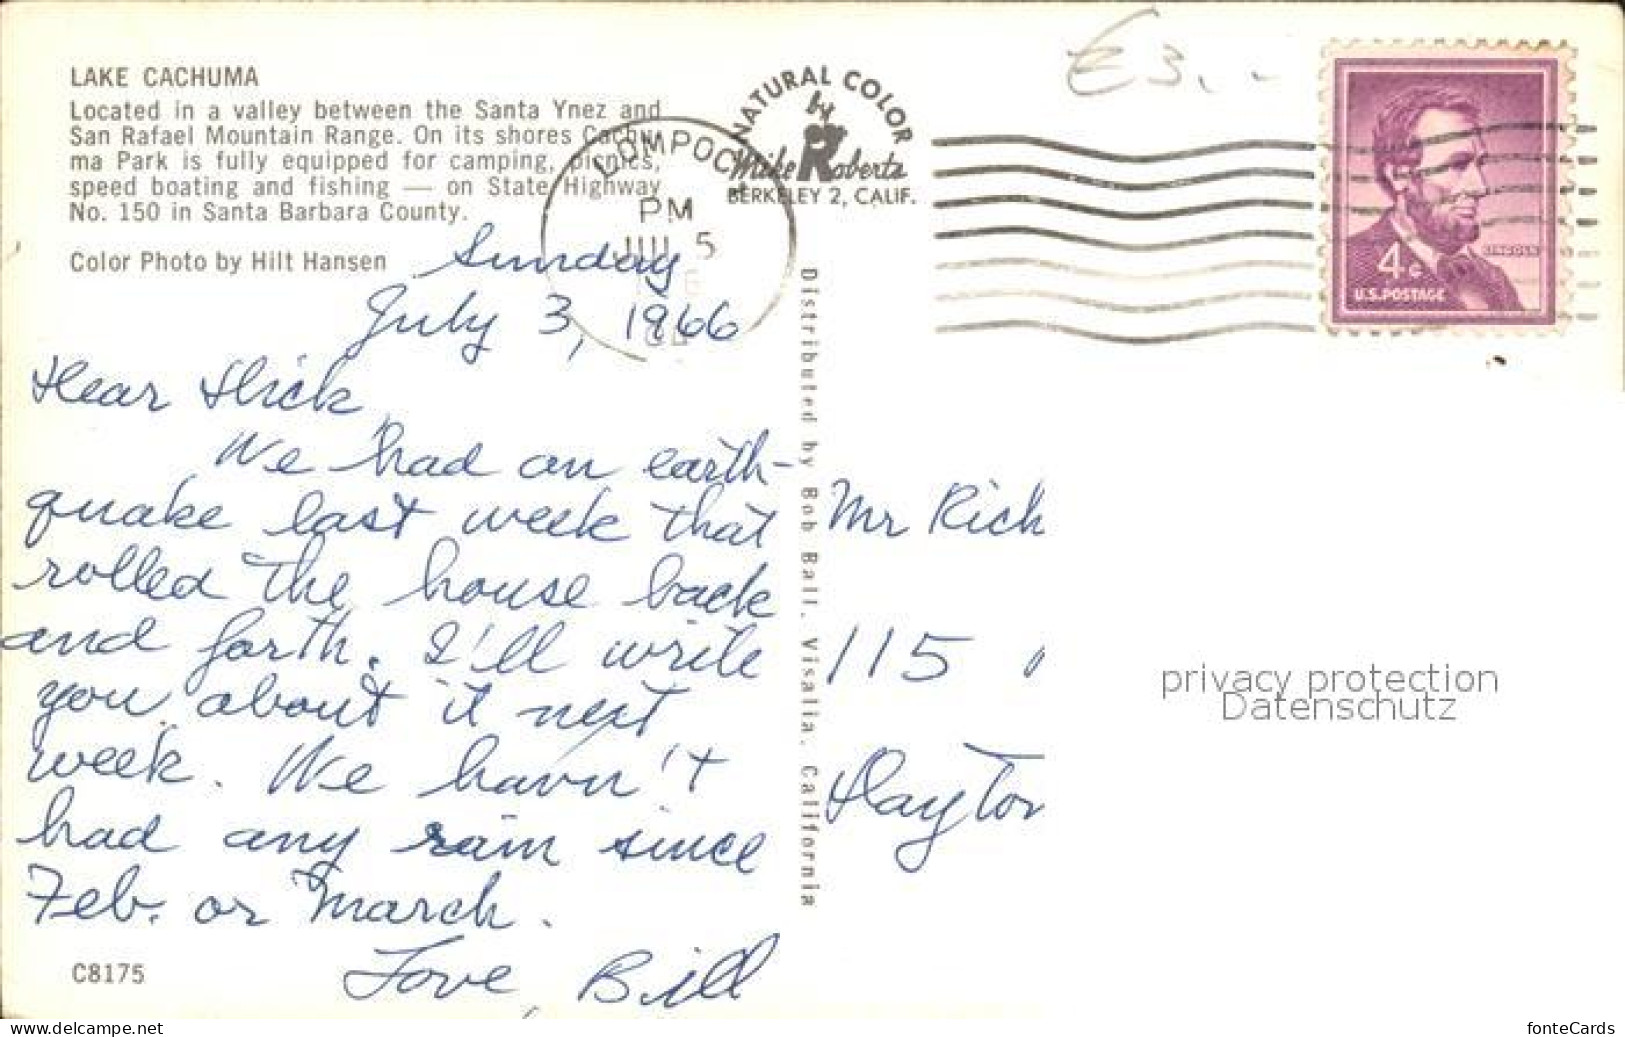 LAKE CACHUMA
Located in a valley between the Santa Ynez and
San Rafael Mountain Range. On its shores Cachu-
ma Park is fully equipped for camping, picnics,
speed boating and fishing — on State Highway
No. 150 in Santa Barbara County.
Color Photo by Hilt Hansen
NATURAL COLOR
by
Mike Roberts
BERKELEY 2, CALIF.
LOMPOC
PM
JUL 5
E3
4¢
LINCOLN
U.S. POSTAGE
Sunday
July 3, 1966
Dear Dick,
We had an earth-
quake last week that
rolled the house back
and forth. I'll write
you about it next
week. We havn't
had any rain since
Feb. or March.
Love, Bill
C8175
Distributed by Bob Ball, Visalia, California
Mr Rich
115
Dayton
privacy protection
Datenschutz
www.delcampe.net
fonteCards